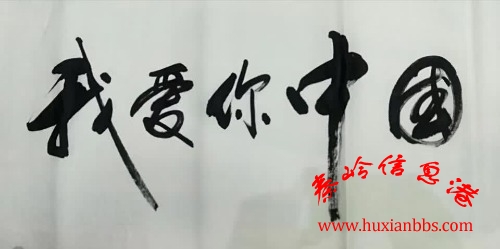 我爱你中国
秦岭信息港
www.huxianbbs.com